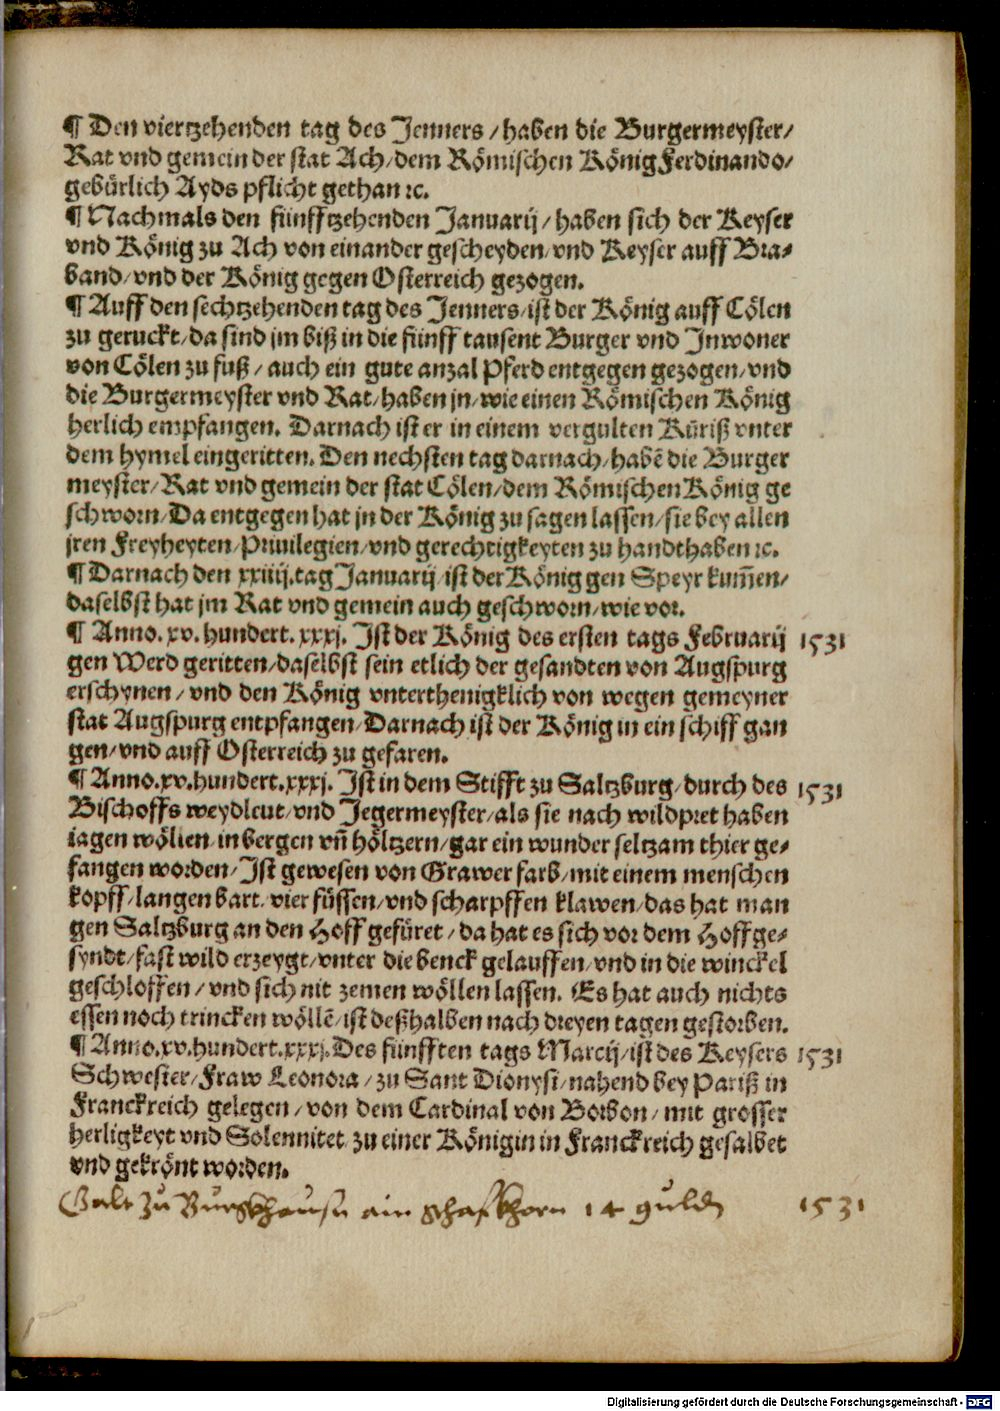 ¶ Den viertzehenden tag des Jenners / haben die Burgermeyster /
Rat vnd gemein der stat Ach / dem Römischen König Ferdinando /
gebürlich Ayds pflicht gethan ꝛc.
¶ Nachmals den fünfftzehenden Januarij / haben sich der Keyser
vnd König zu Ach von einander gescheyden / vnd Keyser auff Bra-
band / vnd der König gegen Osterreich gezogen.
¶ Auff den sechtzehenden tag des Jenners / ist der König auff Cölen
zu geruckt / da sind jm biß in die fünff tausent Burger vnd Inwoner
von Cölen zu fuß / auch ein gute anzal Pferd entgegen gezogen / vnd
die Burgermeyster vnd Rat / haben jn / wie einen Römischen König
herlich empfangen. Darnach ist er in einem vergulten Küriß vnter
dem hymel eingeritten. Den nechsten tag darnach / habē die Burger
meyster / Rat vnd gemein der stat Cölen / dem Römischen König ge
schworn / Da entgegen hat jn der König zu sagen lassen / sie bey allen
jren Freyheyten / Priuilegien / vnd gerechtigkeyten zu handthaben ꝛc.
¶ Darnach den xxiiij. tag Januarij / ist der König gen Speyr kum̄en /
daselbst hat jm Rat vnd gemein auch geschworn / wie vor.
¶ Anno. xv. hundert. xxxj. Ist der König des ersten tags Februarij 1531
gen Werd geritten / daselbst sein etlich der gesandten von Augspurg
erschynen / vnd den König vnterthenigklich von wegen gemeyner
stat Augspurg entpfangen / Darnach ist der König in ein schiff gan
gen / vnd auff Osterreich zu gefaren.
¶ Anno. xv. hundert. xxxj. Ist in dem Stifft zu Saltzburg / durch des 1531
Bischoffs weydleut / vnd Jegermeyster / als sie nach wildpret haben
iagen wöllen / in bergen vn̄ höltzern / gar ein wunder seltzam thier ge-
fangen worden / Ist gewesen von Grawer farb / mit einem menschen
kopff / langen bart / vier füssen / vnd scharpffen klawen / das hat man
gen Saltzburg an den Hoff gefüret / da hat es sich vor dem Hoffge-
syndt / fast wild erzeygt / vnter die benck gelauffen / vnd in die winckel
geschloffen / vnd sich nit zemen wöllen lassen. Es hat auch nichts
essen noch trincken wöllē / ist deßhalben nach dreyen tagen gestorben.
¶ Anno. xv. hundert. xxxj. Des fünfften tags Marcij / ist des Keysers 1531
Schwester / Fraw Leonora / zu Sant Dionysi / nahend bey Pariß in
Franckreich gelegen / von dem Cardinal von Borbon / mit grosser
herligkeyt vnd Solennitet / zu einer Königin in Franckreich gesalbet
vnd gekrönt worden.
Galt zu Burgkhausn ain schafkhorn 14 guldn 1531
Digitalisierung gefördert durch die Deutsche Forschungsgemeinschaft - DFG